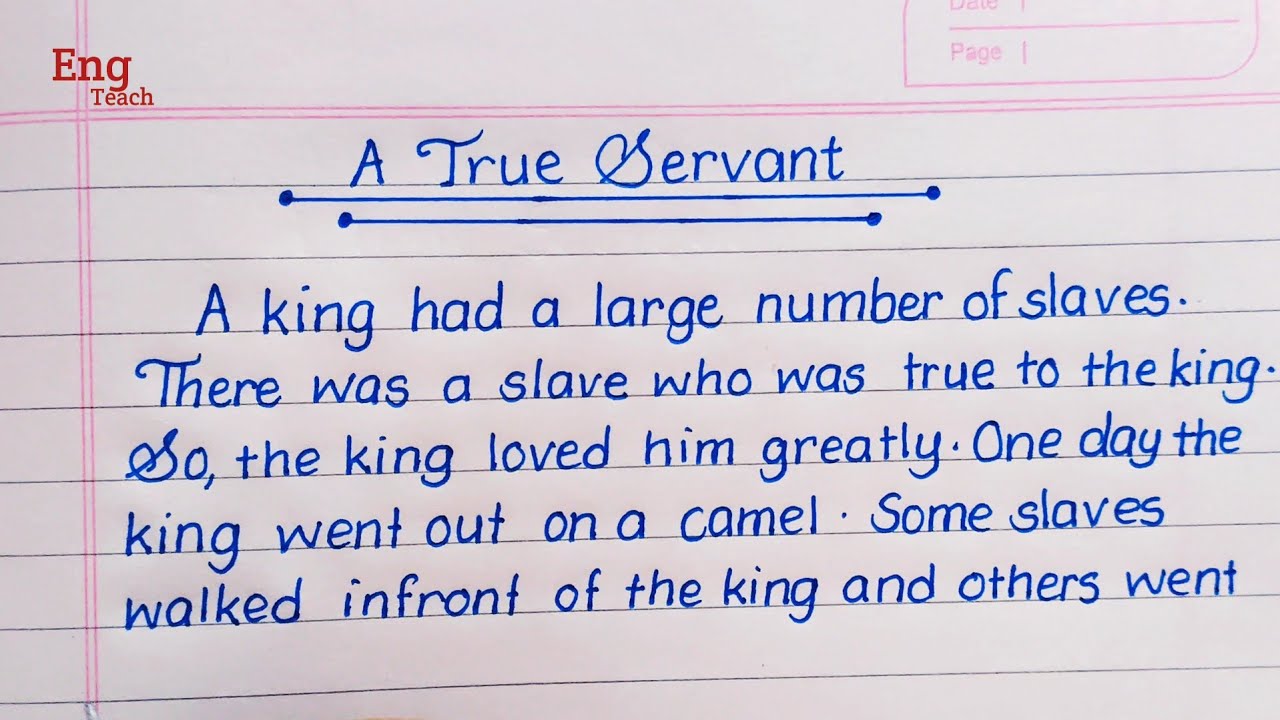 Date
Page
Eng
Teach
A True Servant
A king had a large number of slaves.
There was a slave who was true to the king.
So, the king loved him greatly. One day the
king went out on a camel. Some slaves
walked infront of the king and others went